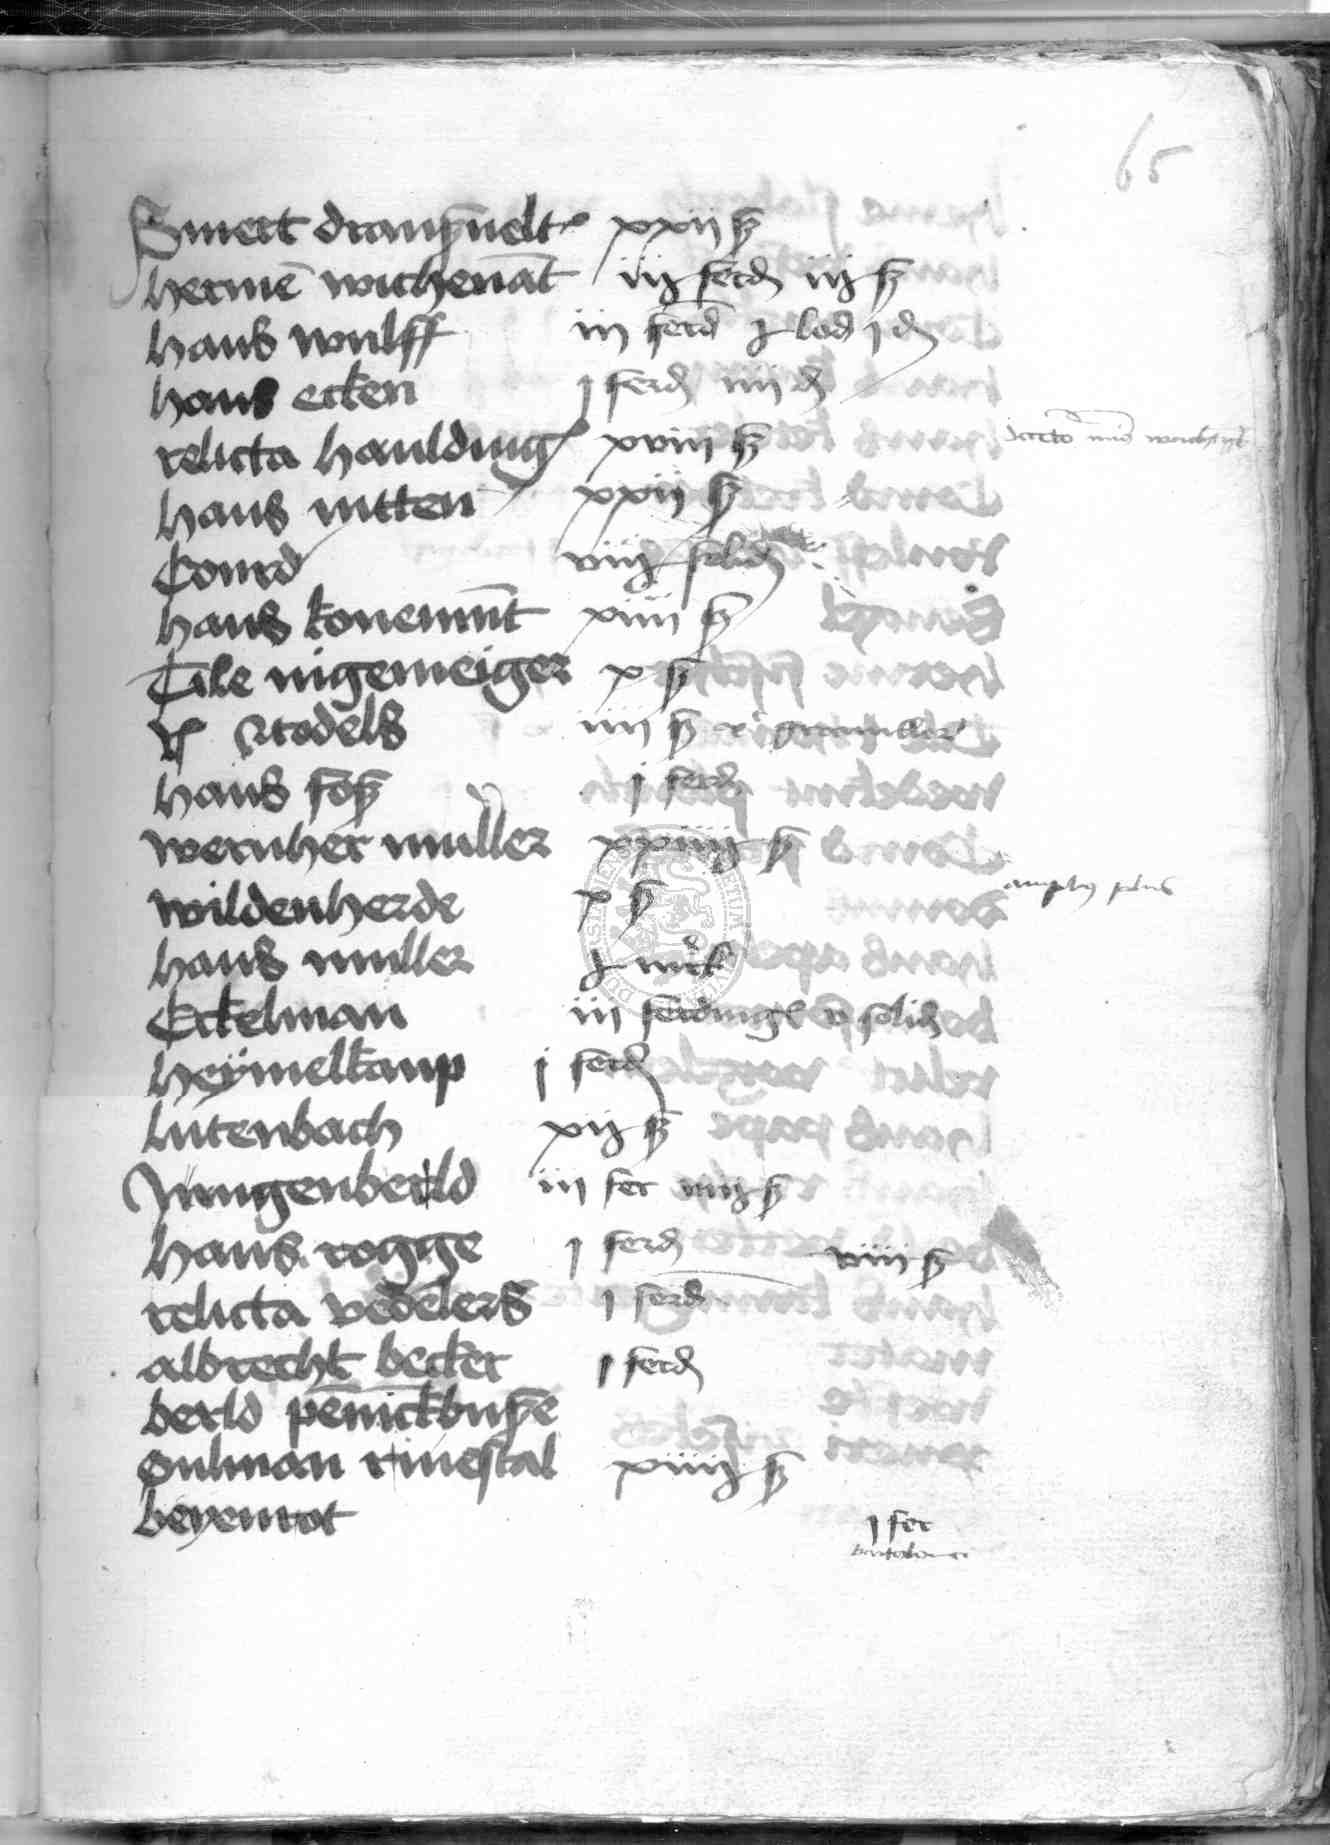 65
Smett dransuelt xxii ß
hermē wichenāt iij ferd iij ß
hans wulff iii ferd lod j d
hans ecken j ferd iiii d
relicta hauldung xviii ß
hans vitten xxii ß
Conrd viij solid
hans konemūt xiiii ß
Tile nigemeiger x ß
stodels iiii ß
hans j ferd
wernher muller xxiiij ß
wildenherde x ß
hans muller mrk
Eckelman iii ferding v solid
heÿmelkamp j ferd
lutenbach xij ß
Jungenberld iii fer iiij ß
hans rogge j ferd viiii ß
relicta vedelers j ferd
albrecht becker j ferd
berld pēnickbuße
oulman rinestal xiiij ß
beyenrot j fer